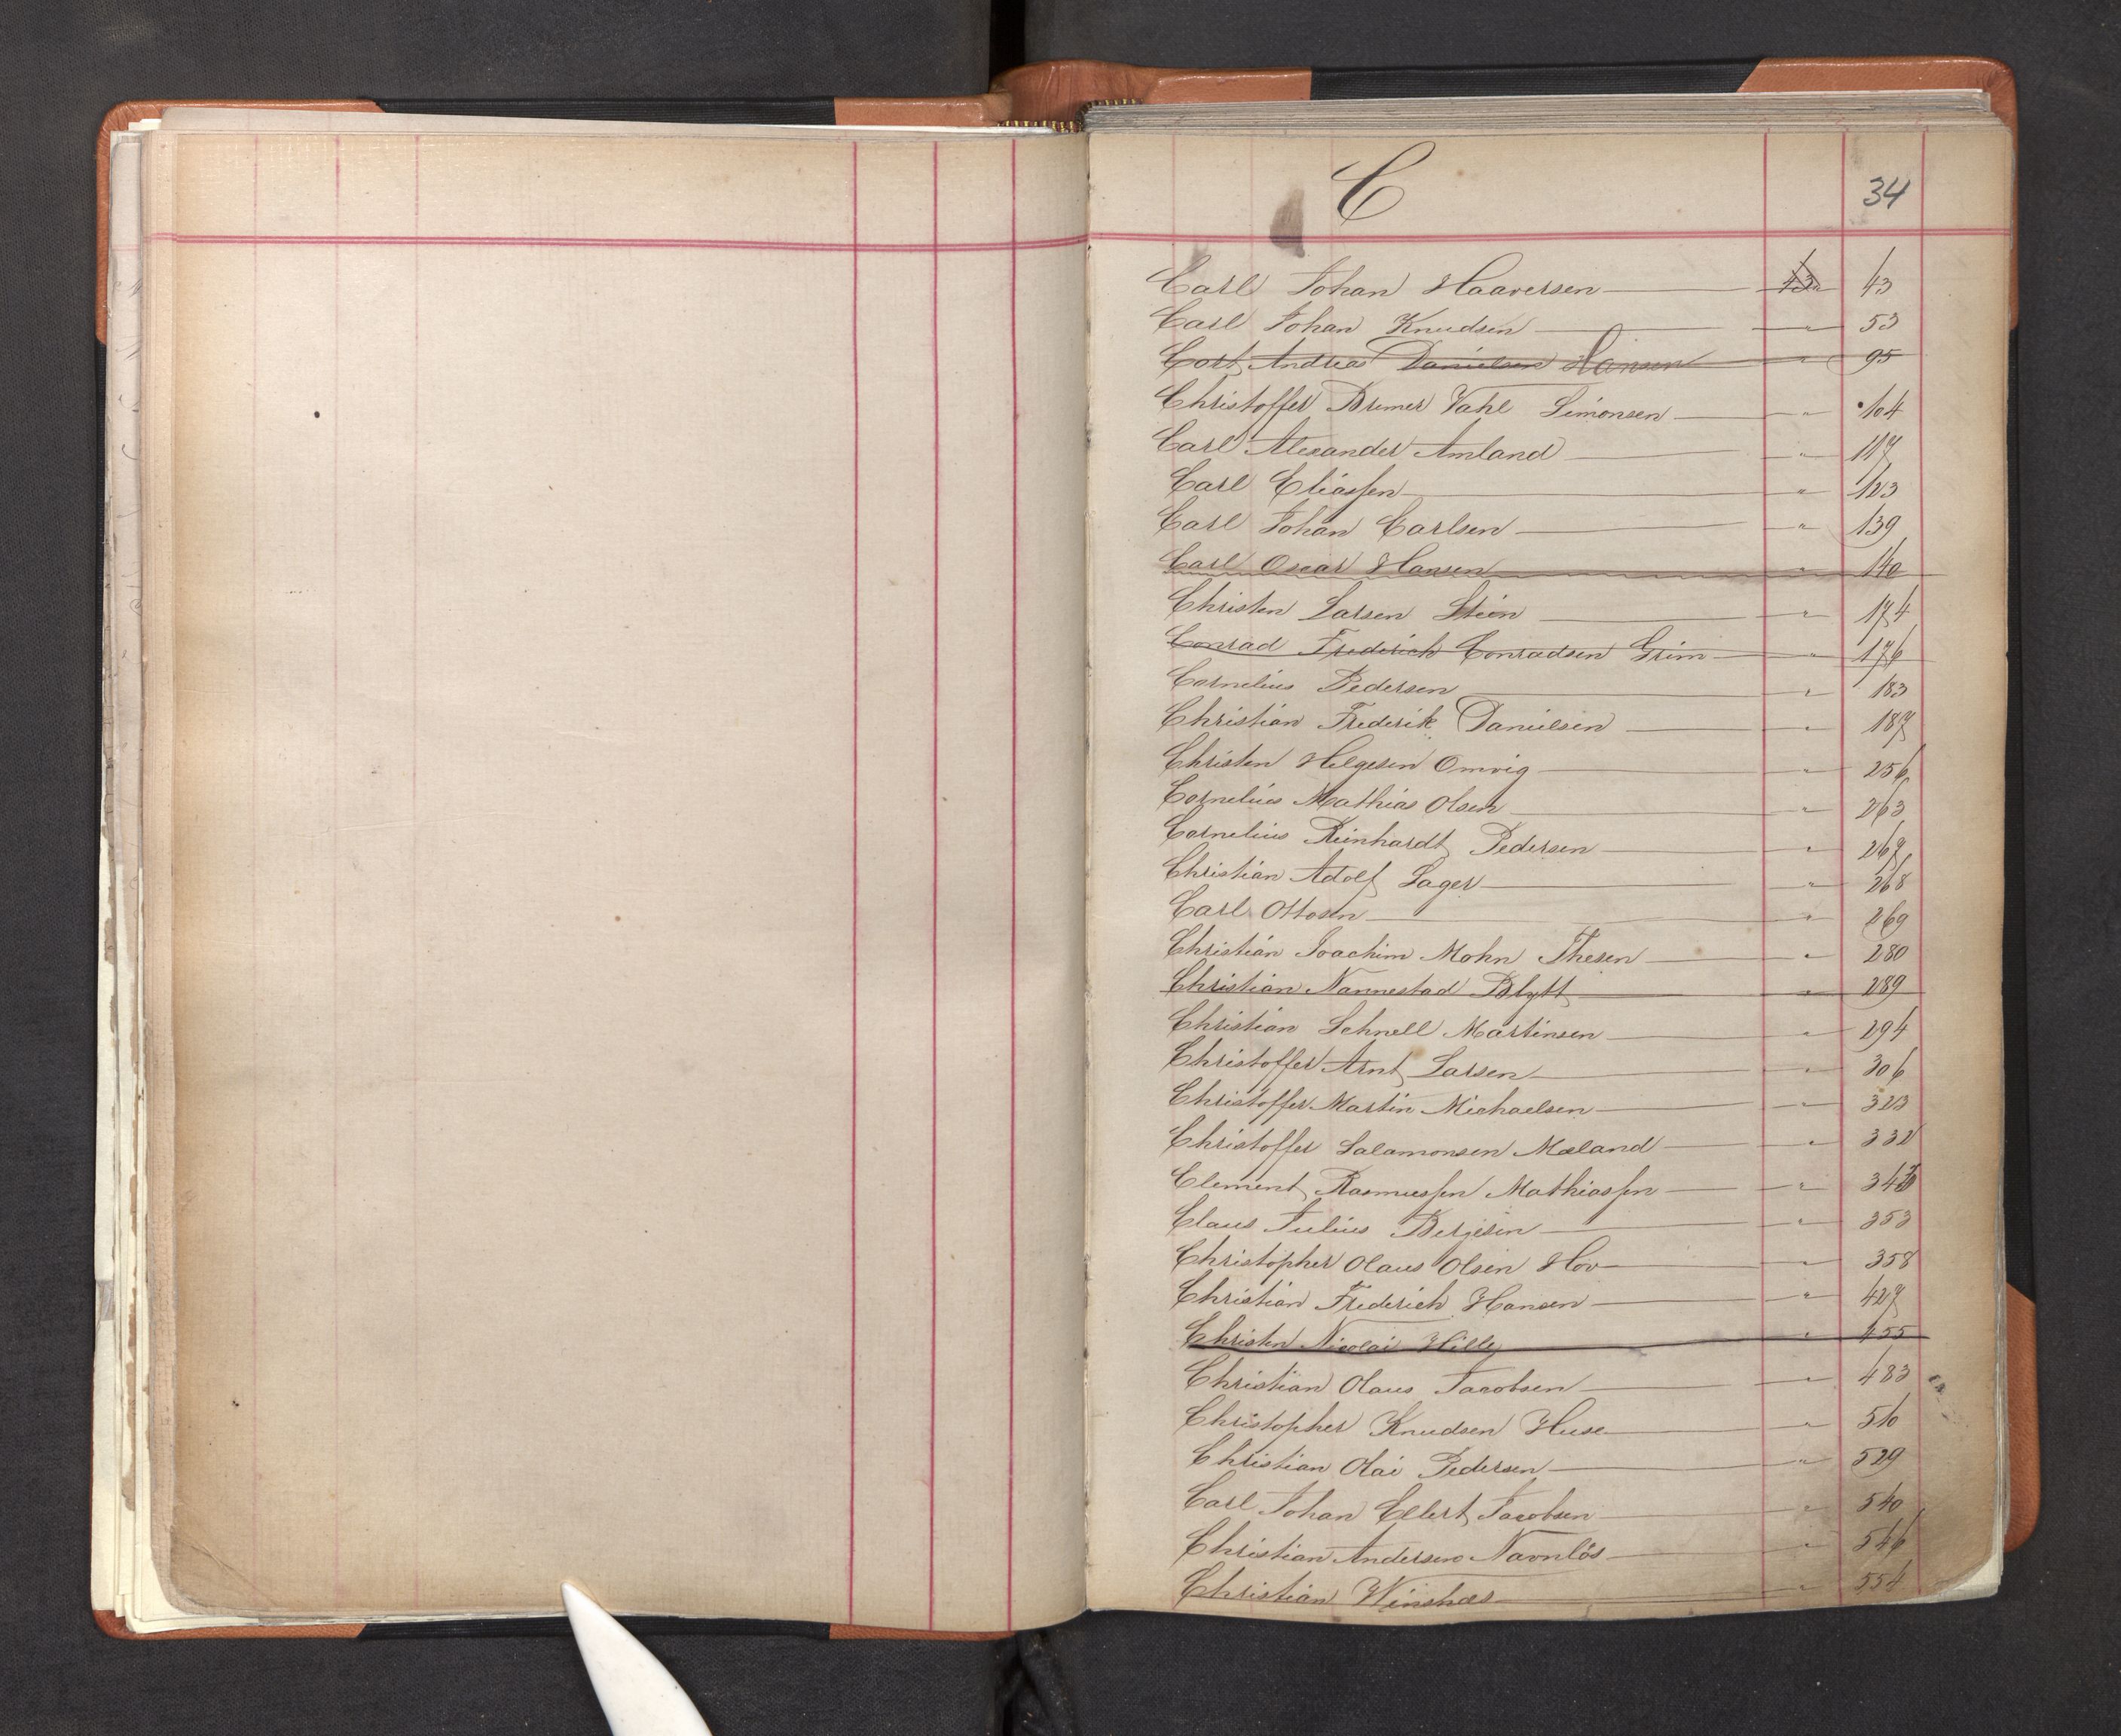 C 34
Carl Johan Haaversen 43
Carl Johan Knudsen " 53
Cort Andreas Danielsen Hansen " 95
Christoffer Bremer Vahl Simonsen " 104
Carl Alexander Amland " 117
Carl Eliassen " 123
Carl Johan Carlsen " 139
Carl Oscar Hansen " 140
Christen Larsen Steen " 174
Conrad Frederich Conradsen Grim " 176
Cornelius Pedersen " 183
Christian Frederik Danielsen " 187
Christen Helgesen Omvig " 256
Cornelius Mathias Olsen " 263
Cornelius Reinhardt Pedersen " 267
Christian Adolf Lager " 268
Carl Ottosen " 269
Christian Joachim Mohn Thesen " 280
Christian Nannestad Blytt " 289
Christian Schnell Martinsen " 294
Christoffer Arnt Larsen " 306
Christoffer Martin Michaelsen " 323
Christoffer Salamonsen Mæland " 332
Clement Rasmussen Mathiassen "
Claus Julius Bergesen " 353
Christopher Olaus Olsen Hov " 358
Christian Frederich Hansen " 427
Christen Nicolai Hille " 455
Christian Olaus Jacobsen " 483
Christopher Knudsen Huse " 510
Christian Olai Pedersen " 529
Carl Johan Ellert Jacobsen " 540
Christian Andersen Navnløs " 546
Christian Winsnæs " 554